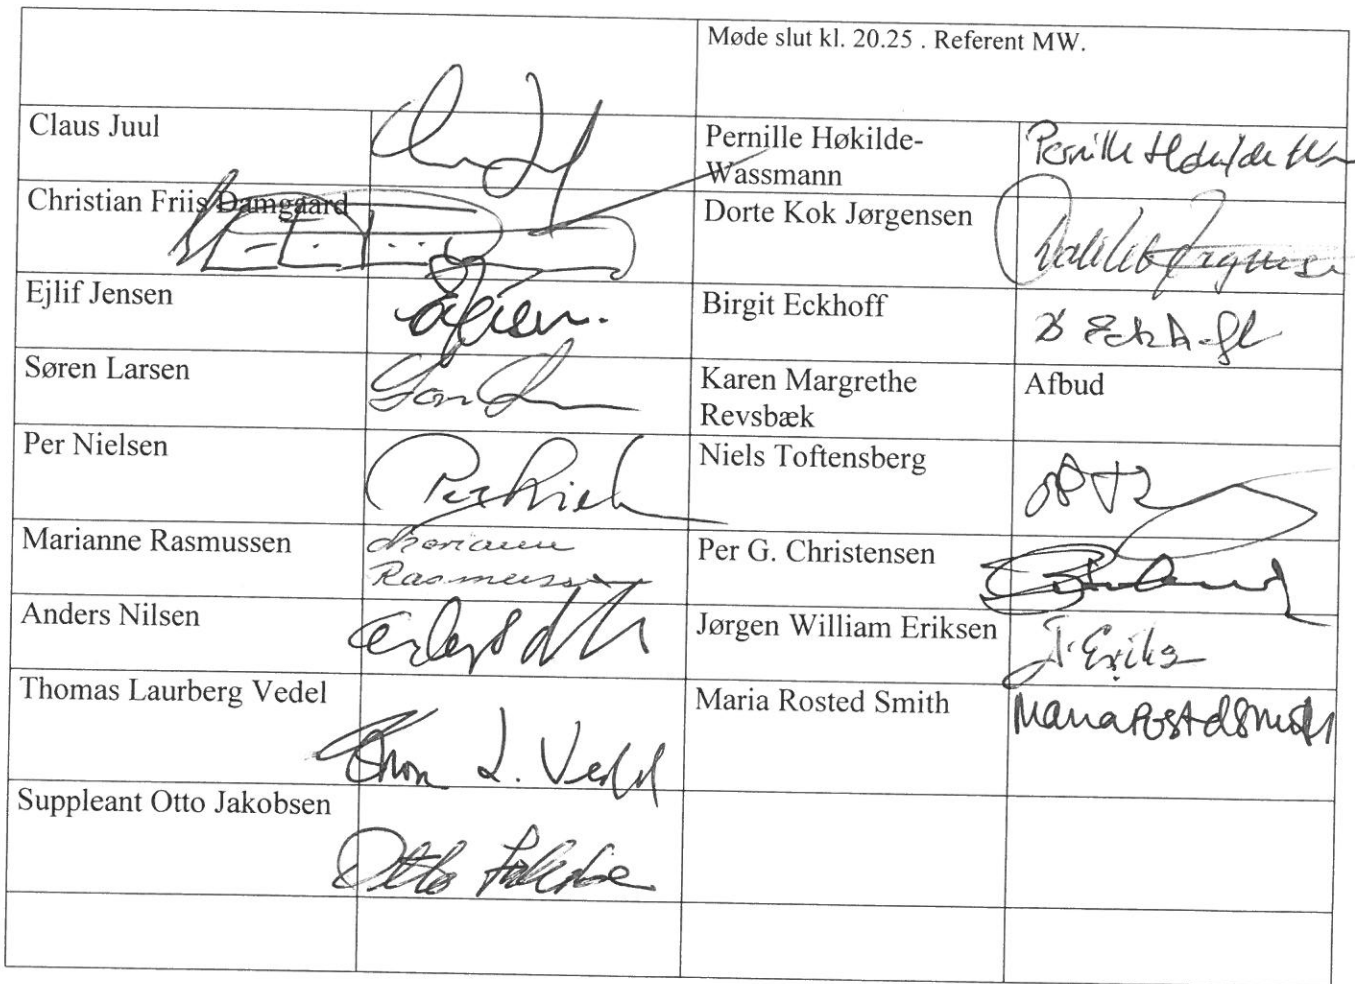 Møde slut kl. 20.25 . Referent MW.
Claus Juul
Pernille Høkilde-
Wassmann
Pernille
Christian Friis Damgaard
Dorte Kok Jørgensen
Ejlif Jensen
Birgit Eckhoff
Søren Larsen
Karen Margrethe
Revsbæk
Afbud
Per Nielsen
Niels Toftensberg
Marianne Rasmussen
Marianne
Rasmussen
Per G. Christensen
Anders Nilsen
Jørgen William Eriksen
Thomas Laurberg Vedel
L. Vedel
Maria Rosted Smith
Maria Rosted Smith
Suppleant Otto Jakobsen
Otto Jakobsen